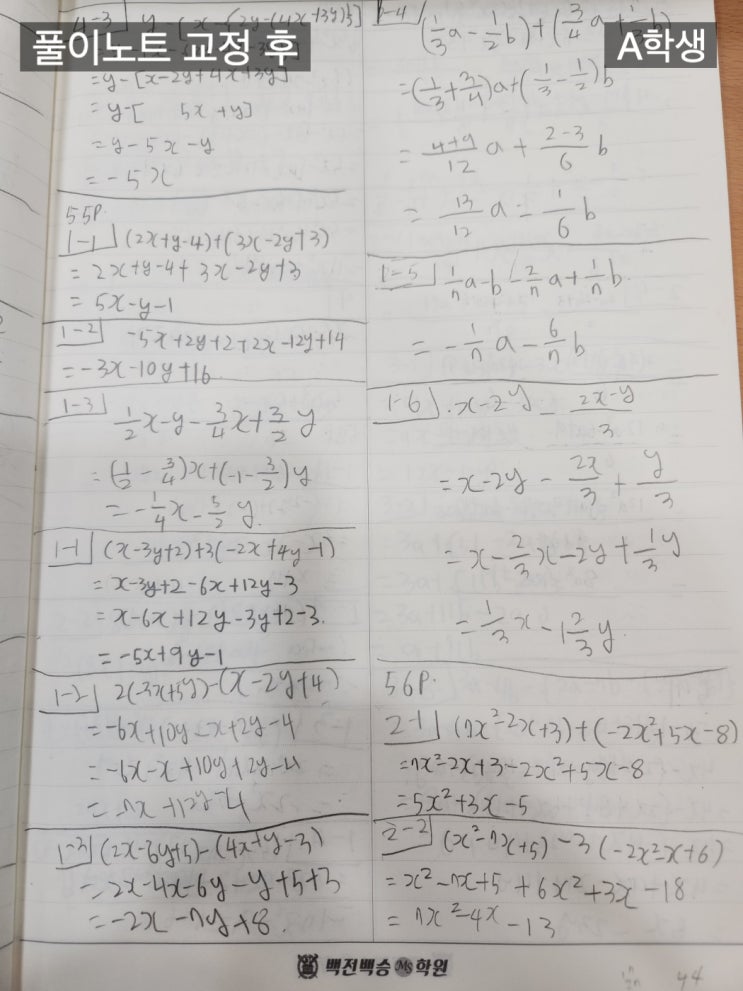 풀이노트 교정 후
A학생
4-3
= y-[x-2y+4x+3y]
= y-[ 5x+y]
= y-5x-y
= -5x
55P.
1-1 (2x+y-4)+(3x-2y+3)
= 2x+y-4+3x-2y+3
= 5x-y-1
1-2 -5x+2y+2+2x-12y+14
= -3x-10y+16
1-3 1/2x-y-3/4x+3/2y
= (1/2-3/4)x+(-1-3/2)y
= -1/4x-5/2y.
1-1 (x-3y+2)+3(-2x+4y-1)
= x-3y+2-6x+12y-3
= x-6x+12y-3y+2-3.
= -5x+9y-1
1-2 2(-3x+5y)-(x-2y+4)
= -6x+10y-x+2y-4
= -6x-x+10y+2y-4
= 7x+12y-4
1-3 (2x-6y+5)-(4x+y-3)
= 2x-4x-6y-y+5+3
= -2x-7y+8.
1-4 (1/3a-1/2b)+(3/4a+1/3b)
= (1/3+3/4)a+(1/3-1/2)b
= 4+9/12 a + 2-3/6 b
= 13/12 a - 1/6 b
1-5 1/7a-b-2/7a+1/7b.
= -1/7a-6/7b
1-6 x-2y-2x-y/3
= x-2y-2x/3+y/3
= x-2/3x-2y+1/3y
= 1/3x-1 2/3y.
56P.
2-1 (7x²-2x+3)+(-2x²+5x-8)
= 7x²-2x+3-2x²+5x-8
= 5x²+3x-5
2-2 (x²-7x+5)-3(-2x²-x+6)
= x²-7x+5+6x²+3x-18
= 7x²-4x-13
백전백승 Ms 학원